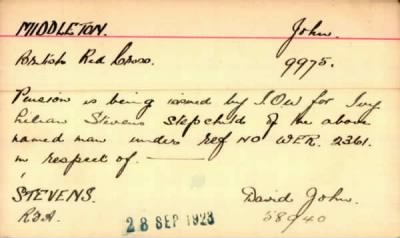 MIDDLETON. John.
British Red Cross. 9975.
Pension is being issued by I.O.W for Ivy
Lilian Stevens Stepchild of the above
named man under ref NO WER. 2361.
in respect of.
STEVENS. David John.
R.G.A. 58940
28 SEP 1923